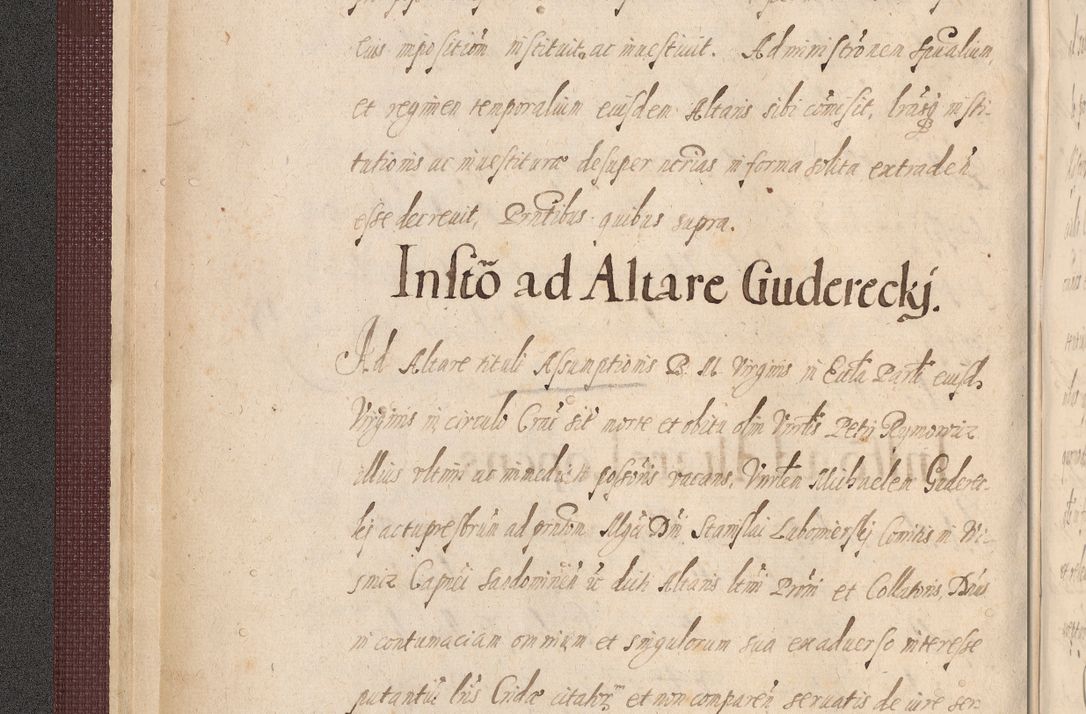 Eius impositiõm instituit, ac inuestiuit. Administrõnem spualium,
et regimen temporalium eiusdem Altaris sibi cõmisit, lrãsq́ insti-
tutionis ac inuestituræ desuper necrias in forma solita extraden̄
esse decreuit, Prntibus quibus supra.
Instõ ad Altare Guderecky.
Ad Altare tituli Assumptionis B. M. Virginis in Eccla Parli eiusd.
Virginis in circulo Crac̄ sit̄ morte et obitu olim Vnrlis Petri Reymowicz
illius vltimi ac immediati possoris vacans, Vnrlem Michaelem Guderec-
kij actu presbrum ad prntõm Mgci Dñi Stanislai Lubomierskij Comitis in Wi-
snicz Capnei Sandomirien̄ vt dicti Altaris ltimi Prõni et Collatoris, Dñus
in contumaciam omnium et singulorum sua ex aduerso interesse
putantiū lris Cridæ citator̄ et non comparen̄ seruatis de iure ser-